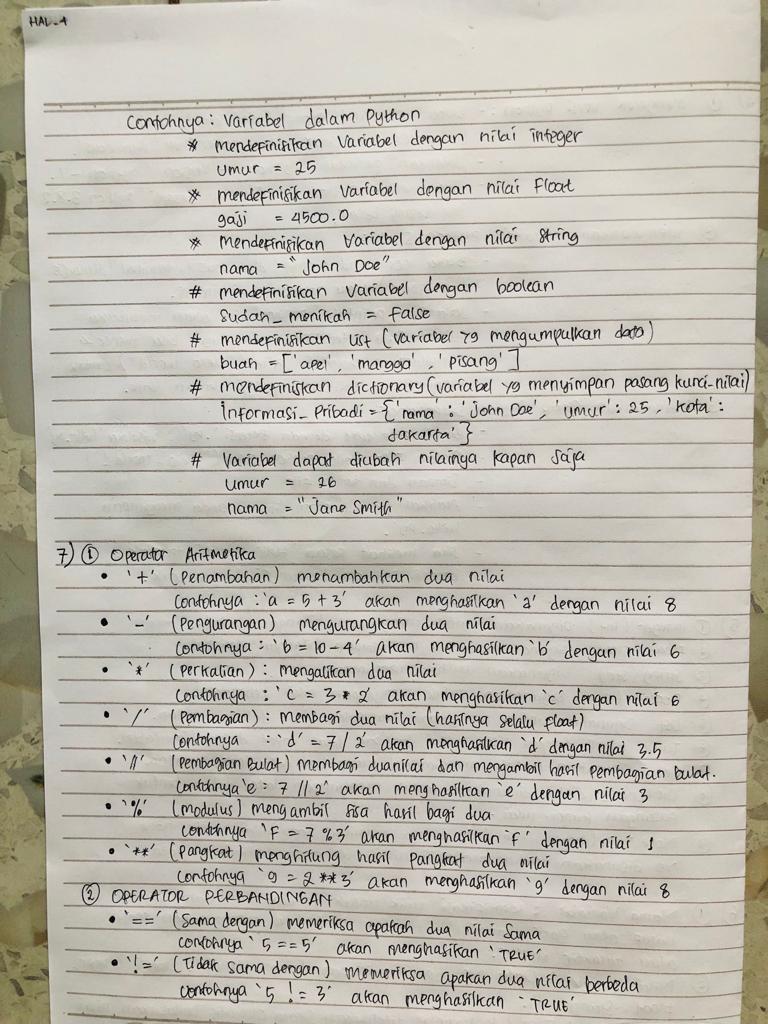 HAL_4
Contohnya: Variabel dalam Python
* mendefinisikan Variabel dengan nilai integer
umur = 25
* mendefinisikan Variabel dengan nilai Float
gaji = 4500.0
* Mendefinisikan Variabel dengan nilai String
nama = "John Doe"
# mendefinisikan Variabel dengan boolean
Sudah_menikah = False
# mendefinisikan list (variabel yg mengumpulkan data)
buah = ['apel', 'mangga', 'pisang']
# mendefiniskan dictionary (variabel yg menyimpan pasang kunci-nilai)
informasi_Pribadi = {'nama' : 'John Doe', 'umur' : 25, 'kota' :
Jakarta'}
# Variabel dapat diubah nilainya kapan Saja
umur = 26
nama = "Jane Smith"
7) ① Operator Aritmetika
• '+' (Penambahan) menambahkan dua nilai
Contohnya : 'a = 5 + 3' akan menghasilkan 'a' dengan nilai 8
• '-' (Pengurangan) mengurangkan dua nilai
Contohnya : 'b = 10 - 4' akan menghasilkan 'b' dengan nilai 6
• '*' (Perkalian) : mengalikan dua nilai
Contohnya : 'c = 3 * 2' akan menghasilkan 'c' dengan nilai 6
• '/' (Pembagian) : membagi dua nilai (hasilnya selalu float)
Contohnya : 'd' = 7 / 2' akan menghasilkan 'd' dengan nilai 3.5
• '//' (Pembagian Bulat) membagi dua nilai dan mengambil hasil pembagian bulat.
Contohnya 'e : 7 // 2' akan menghasilkan 'e' dengan nilai 3
• '%' (modulus) mengambil sisa hasil bagi dua
Contohnya 'F = 7 % 3' akan menghasilkan 'f' dengan nilai 1
• '**' (Pangkat) menghitung hasil pangkat dua nilai
Contohnya 'g = 2 ** 3' akan menghasilkan 'g' dengan nilai 8
② OPERATOR PERBANDINGAN
• '==' (Sama dengan) memeriksa apakah dua nilai Sama
Contohnya '5 == 5' akan menghasikan 'TRUE'
• '!=' (Tidak sama dengan) Memeriksa apakan dua nilai berbeda
Contohnya '5 != 3' akan menghasilkan 'TRUE'